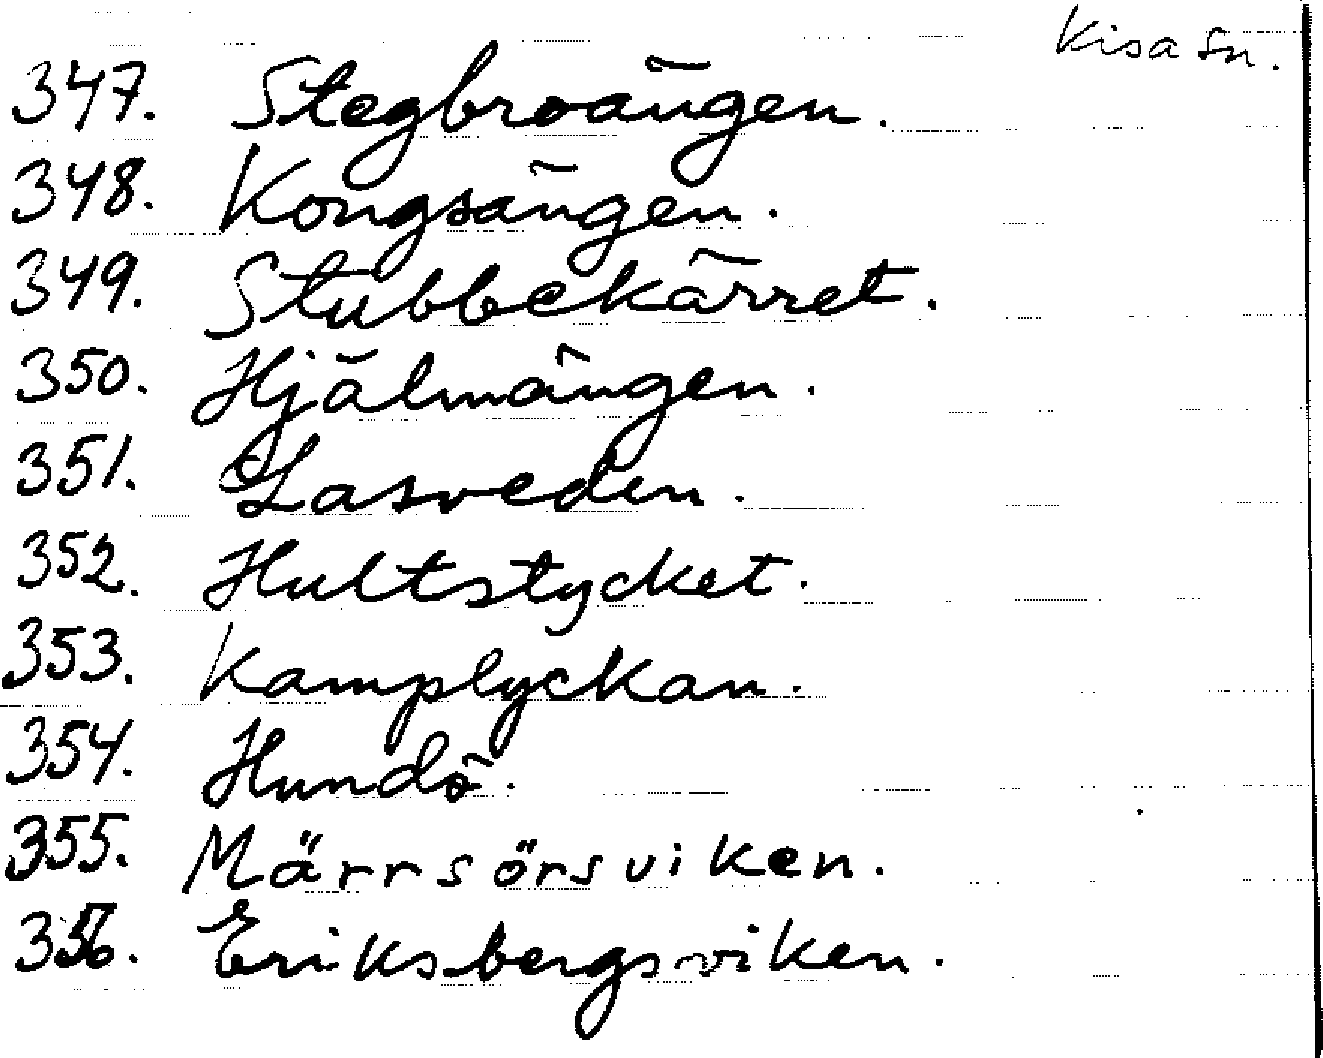 Kisa sn.
347. Stegbroängen.
348. Kongsängen.
349. Stubbekärret.
350. Hjälmängen.
351. Lasveden.
352. Hultstycket.
353. Kamplyckan.
354. Hundö.
355. Märrsörsviken.
356. Eriksbergsviken.